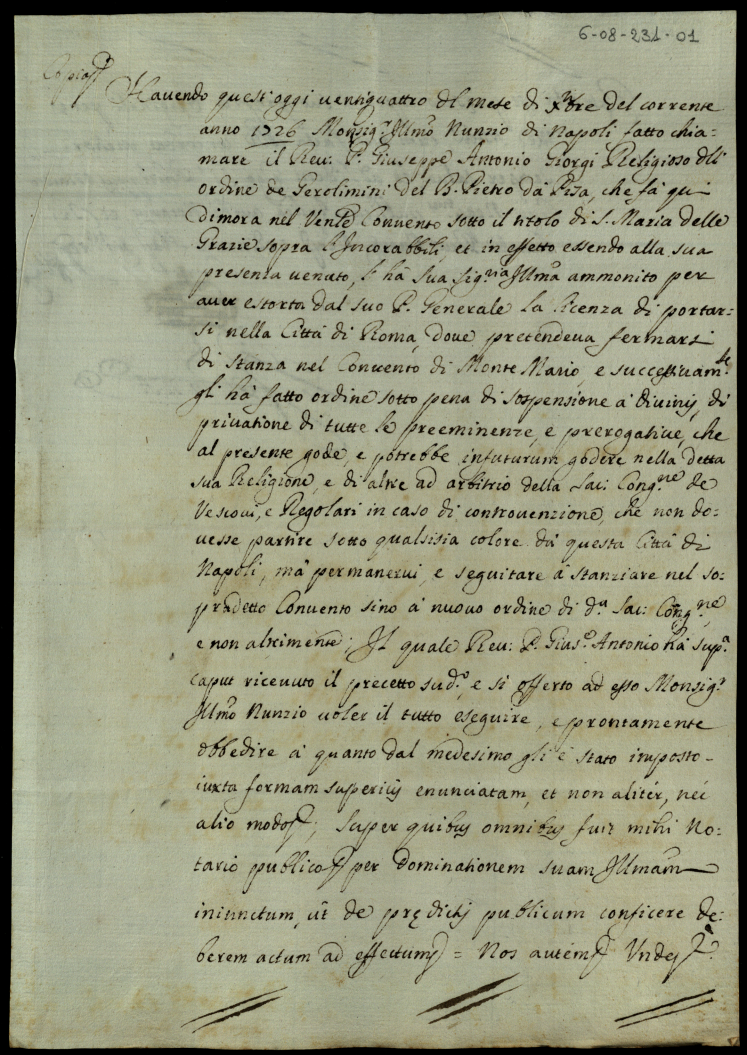 6-08-231-01
Copia
Havendo quest'oggi ventiquattro del mese di Xbre del corrente
anno 1726 Monsig.r Illmo Nunzio di Napoli fatto chia-
mare il Reu: P. Giuseppe Antonio Giorgi Religioso dell'
ordine de Gerolimini del B. Pietro da Pisa, che fà qui
dimora nel Venle Convento sotto il titolo di S. Maria delle
Grazie sopra l'Incorabbili, et in effetto essendo alla sua
presenza venuto, l'hà sua Sig.ria Illma ammonito per
aver estorta dal suo P. Generale la licenza di portar-
si nella Città di Roma, dove pretendeva fermarsi
di stanza nel Convento di Monte Mario, e successivam.te
gli hà fatto ordine sotto pena di sospensione à divinis, di
privatione di tutte le preeminenze, e prerogative, che
al presente gode, e potrebbe infuturum godere nella detta
sua Religione, e di altre ad arbitrio della Sac: Cong.ne de
Vescovi, e Regolari in caso di controvenzione, che non do-
vesse partire sotto qualsisia colore dà questa Città di
Napoli, mà permanervi, e seguitare à stanziare nel so-
pradetto Convento sino à nuovo ordine di d.a Sac: Cong.ne
e non altrimente; Il quale Reu: P. Gius.e Antonio hà sup.a
caput ricevuto il precetto sud.o, e si offerto ad esso Monsig.r
Illmo Nunzio voler il tutto eseguire, e prontamente
obbedire à quanto dal medesimo gli è stato imposto
iuxta formam superius enunciatam, et non alitèr, nec
alio modo; super quibus omnibus fuit mihi No-
tario publico per Dominationem suam Illmam
iniunctum, ùt de prędictis publicum conficere de-
berem actum ad effectum = Nos autèm Unde